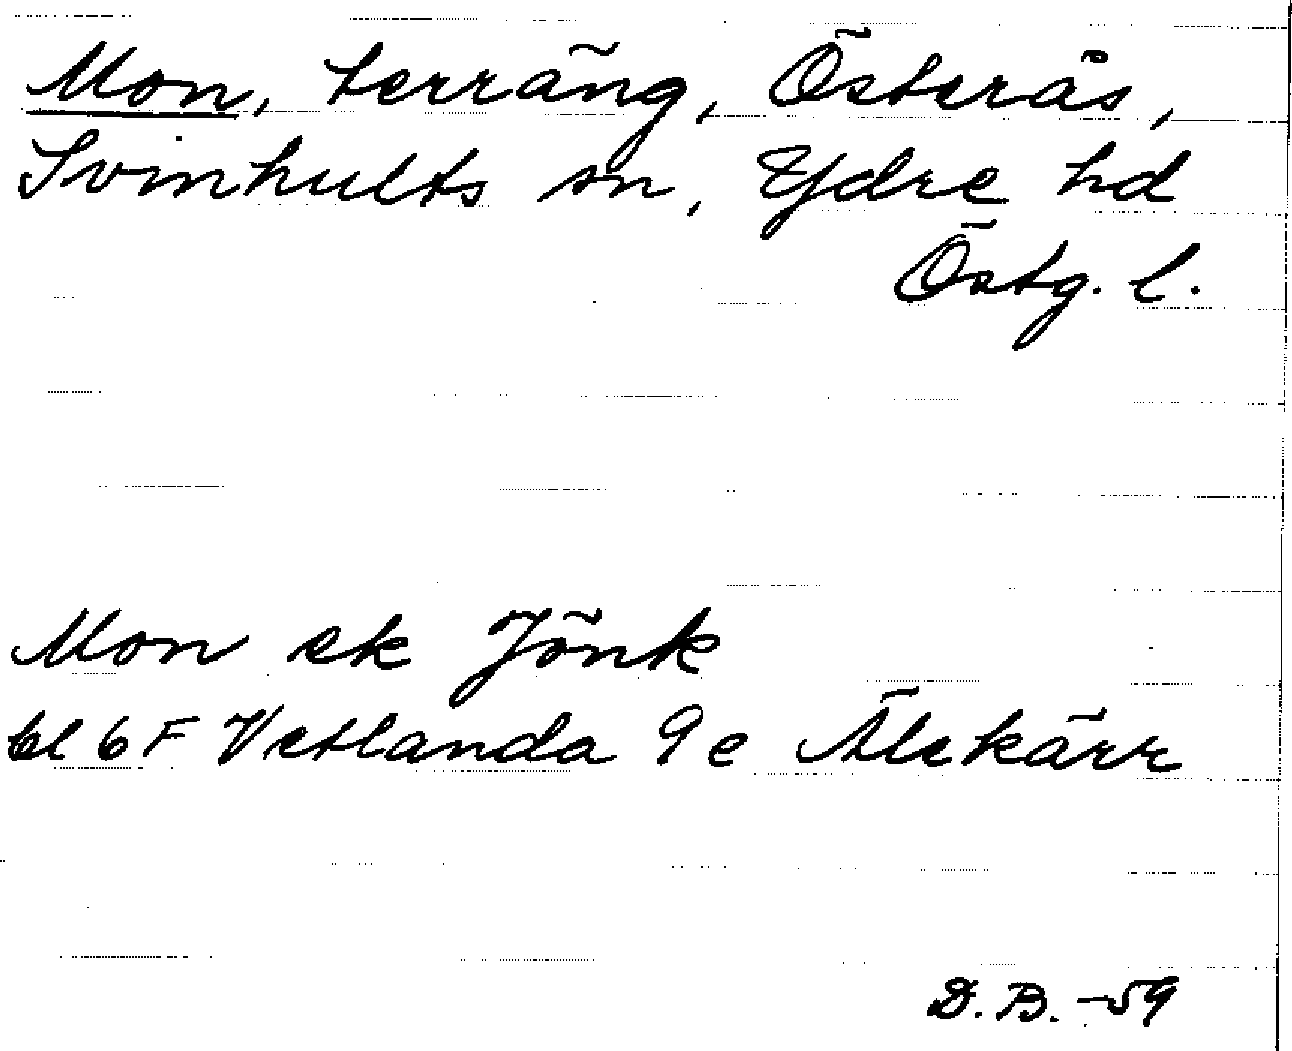 Mon, terräng, Österås,
Svinhults sn, Ydre hd
Östg. l.
Mon ek Jönk
bl 6 F Vetlanda 9 e Älekärr
D. B. -59